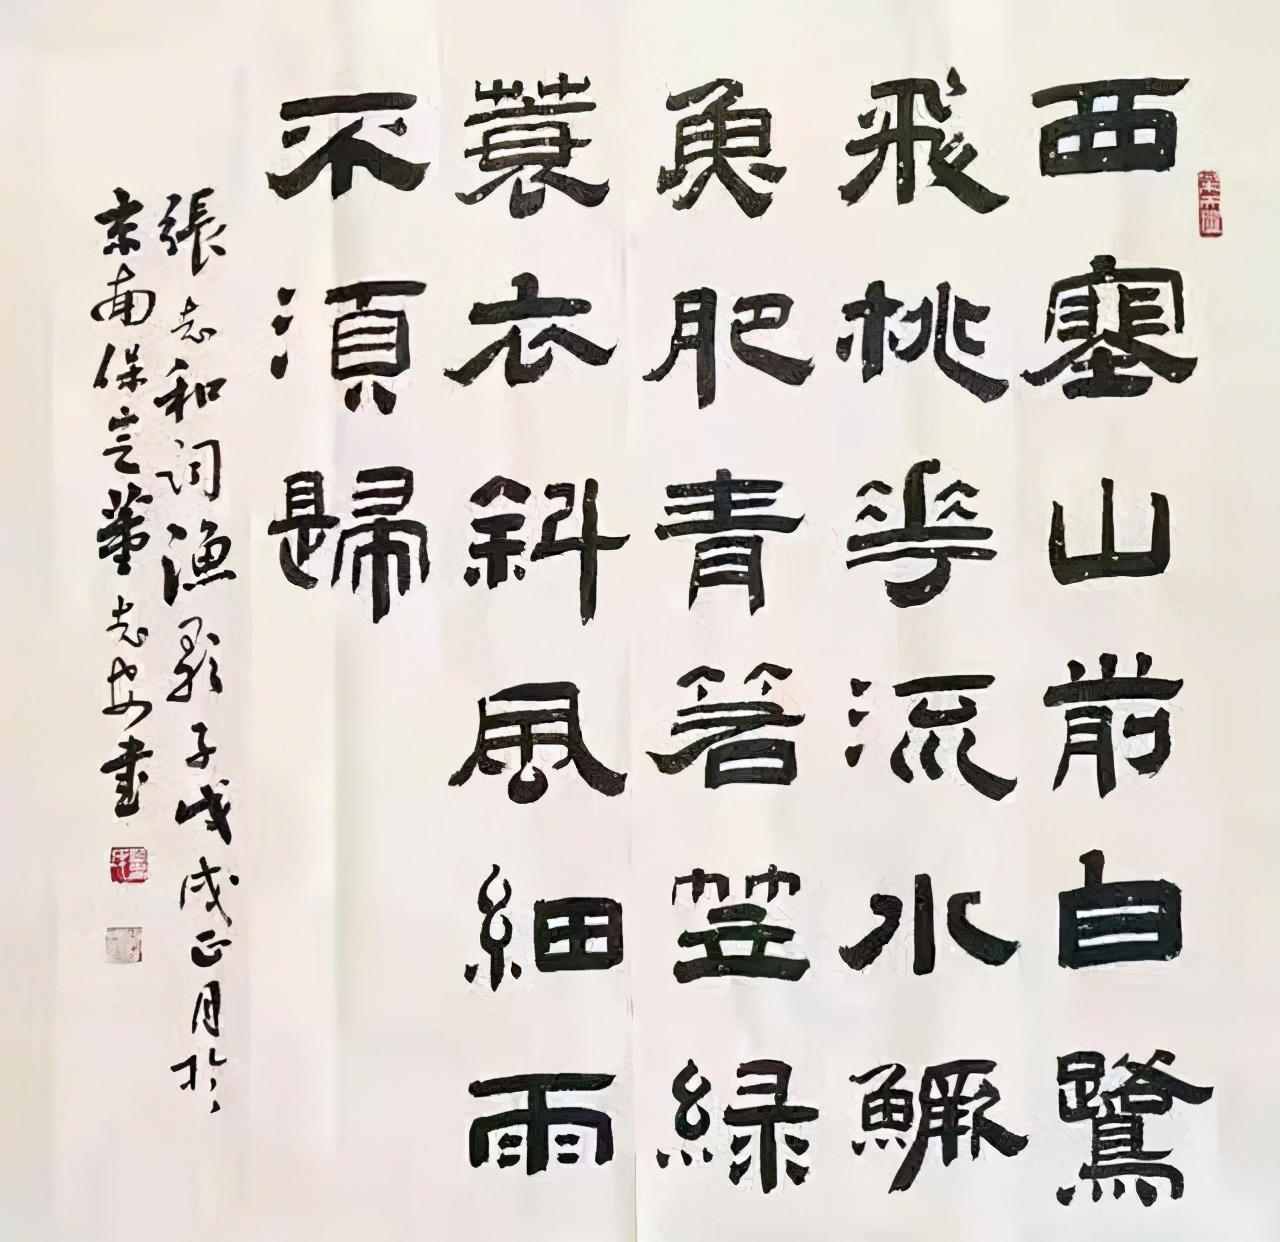 西塞山前白鷺
飛桃花流水鱖
魚肥青箬笠綠
蓑衣斜風細雨
不須歸
張志和詞漁歌子戊戌正月於
京南保定董志安書